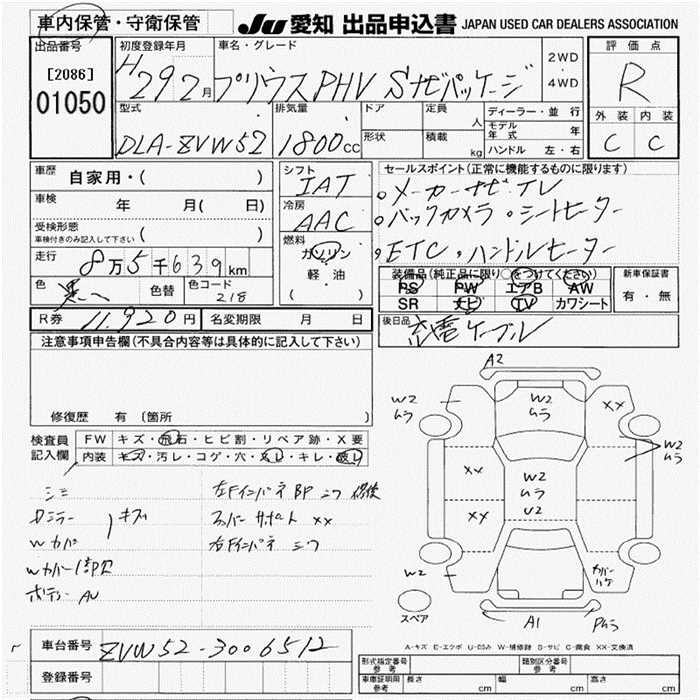 車内保管・守衛保管
JU 愛知 出品申込書 JAPAN USED CAR DEALERS ASSOCIATION
出品番号
[2086]
01050
初度登録年月
H29 2月
車名・グレード
プリウスPHV Sナビパッケージ
2WD
・
4WD
評価点
R
外装 内装
C C
型式
DLA-ZVW52
排気量
1800cc
ドア
定員
人
形状
積載
kg
ディーラー・並行
モデル年式 年
ハンドル 左・右
車歴
自家用・( )
車検
年 月( 日)
受検形態
車検付きのみ記入して下さい ( )
走行
8万5千639km
色
黒
色替
色コード
218
R券 11,920円
名変期限 月 日
シフト
IAT
冷房
AAC
燃料
ガソリン
軽・油
( )
セールスポイント(正常に機能するものに限ります)
・メーカーナビ TV
・バックカメラ ・シートヒーター
・ETC ・ハンドルヒーター
装備品(純正品に限り○をつけてください)
PS PW エアB AW
SR ナビ TV カワシート
新車保証書
有・無
後日品
充電ケーブル
注意事項申告欄(不具合内容等は具体的に記入して下さい)
修復歴 有 (箇所
検査員
記入欄
FW キズ・飛石・ヒビ割・リペア跡・X要
内装 キズ・汚レ・コゲ・穴・スレ・キレ・破レ
シミ
左Fインパネ BP シワ 修後
キズ
Wカバー
スーパーサポート XX
右Fインパネ シワ
A2
W2
ムラ
W2
ムラ
XX
XX
XX
W2
ムラ
U2
W2
ムラ
W2
カバーハゲ
スペア
A1
Pムラ
A-キズ E-エクボ U-凹み W-補修跡 S-サビ C-腐食 XX-交換済
車台番号 ZVW52-3006512
登録番号
形式指定番号
参考
類別区分番号
参考
車庫証明用
参考
長さ cm
幅 cm
高さ cm